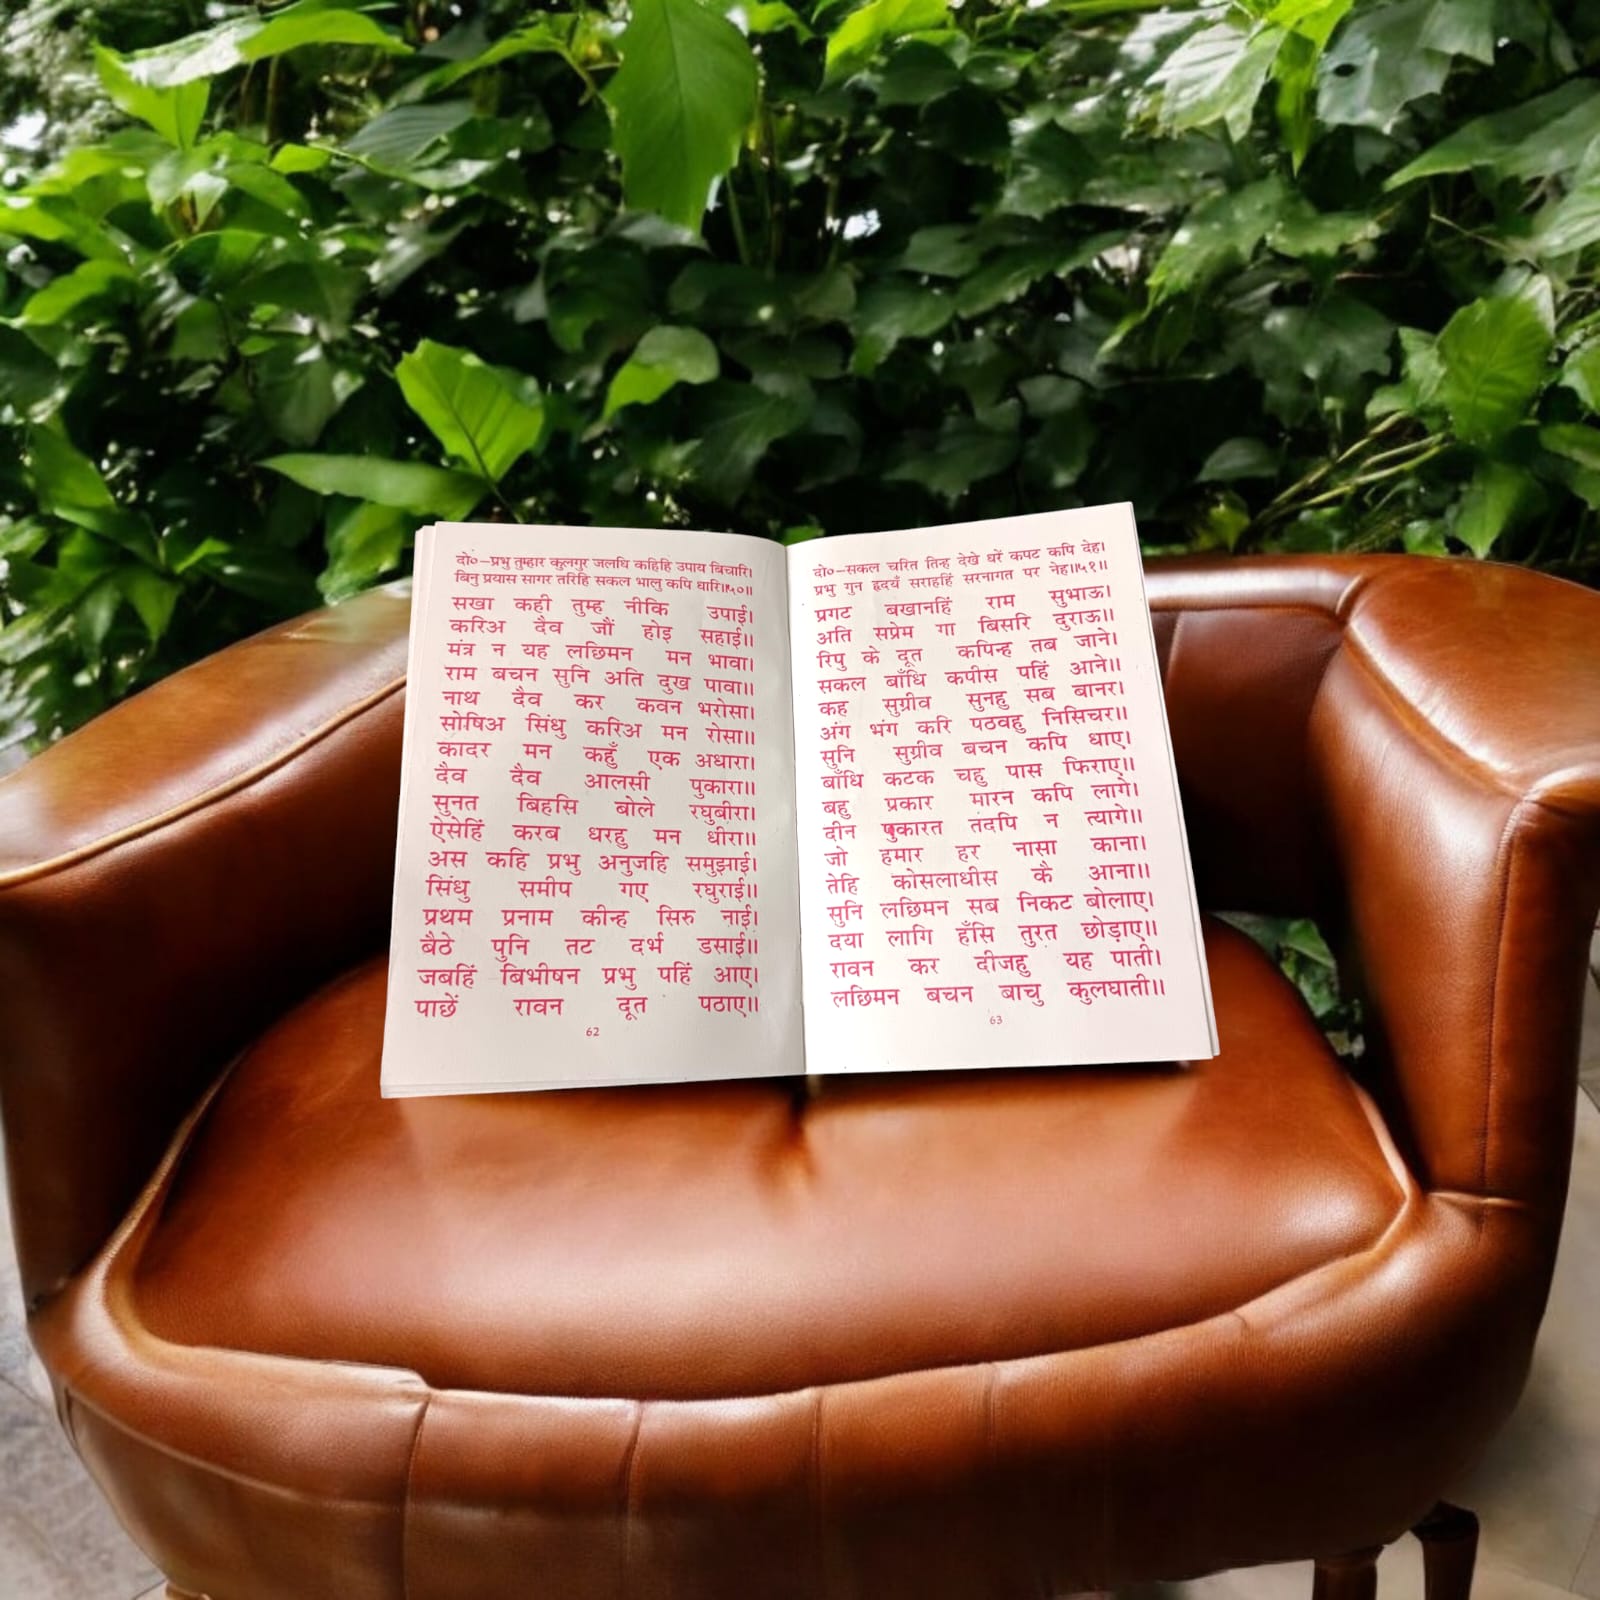 दो०—प्रभु तुम्हार कुलगुर जलधि कहिहि उपाय बिचारि।
बिनु प्रयास सागर तरिहि सकल भालु कपि धारि॥५०॥
सखा कही तुम्ह नीकि उपाई।
करिअ दैव जौं होइ सहाई॥
मंत्र न यह लछिमन मन भावा।
राम बचन सुनि अति दुख पावा॥
नाथ दैव कर कवन भरोसा।
सोषिअ सिंधु करिअ मन रोसा॥
कादर मन कहुँ एक अधारा।
दैव दैव आलसी पुकारा॥
सुनत बिहसि बोले रघुबीरा।
ऐसेहिं करब धरहु मन धीरा॥
अस कहि प्रभु अनुजहि समुझाई।
सिंधु समीप गए रघुराई॥
प्रथम प्रनाम कीन्ह सिरु नाई।
बैठे पुनि तट दर्भ डसाई॥
जबहिं बिभीषन प्रभु पहिं आए।
पाछें रावन दूत पठाए॥
62
दो०—सकल चरित तिन्ह देखे धरें कपट कपि देह।
प्रभु गुन हृदयँ सराहहिं सरनागत पर नेह॥५१॥
प्रगट बखानहिं राम सुभाऊ।
अति सप्रेम गा बिसरि दुराऊ॥
रिपु के दूत कपिन्ह तब जाने।
सकल बाँधि कपीस पहिं आने॥
कह सुग्रीव सुनहु सब बानर।
अंग भंग करि पठवहु निसिचर॥
सुनि सुग्रीव बचन कपि धाए।
बाँधि कटक चहु पास फिराए॥
बहु प्रकार मारन कपि लागे।
दीन पुकारत तदपि न त्यागे॥
जो हमार हर नासा काना।
तेहि कोसलाधीस कै आना॥
सुनि लछिमन सब निकट बोलाए।
दया लागि हँसि तुरत छोड़ाए॥
रावन कर दीजहु यह पाती।
लछिमन बचन बाचु कुलघाती॥
63